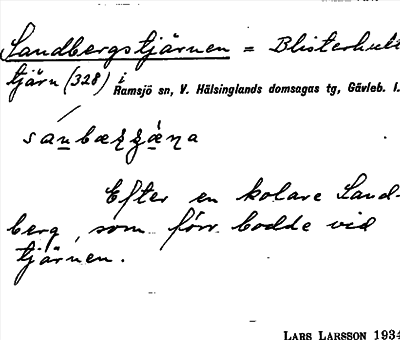 Sandbergstjärnen = Blisterhult
tjärn (328) i
Ramsjö sn, V. Hälsinglands domsagas tg, Gävleb. l.
Efter en kolare Sand-
berg, som förr bodde vid
tjärnen.
LARS LARSSON 1934